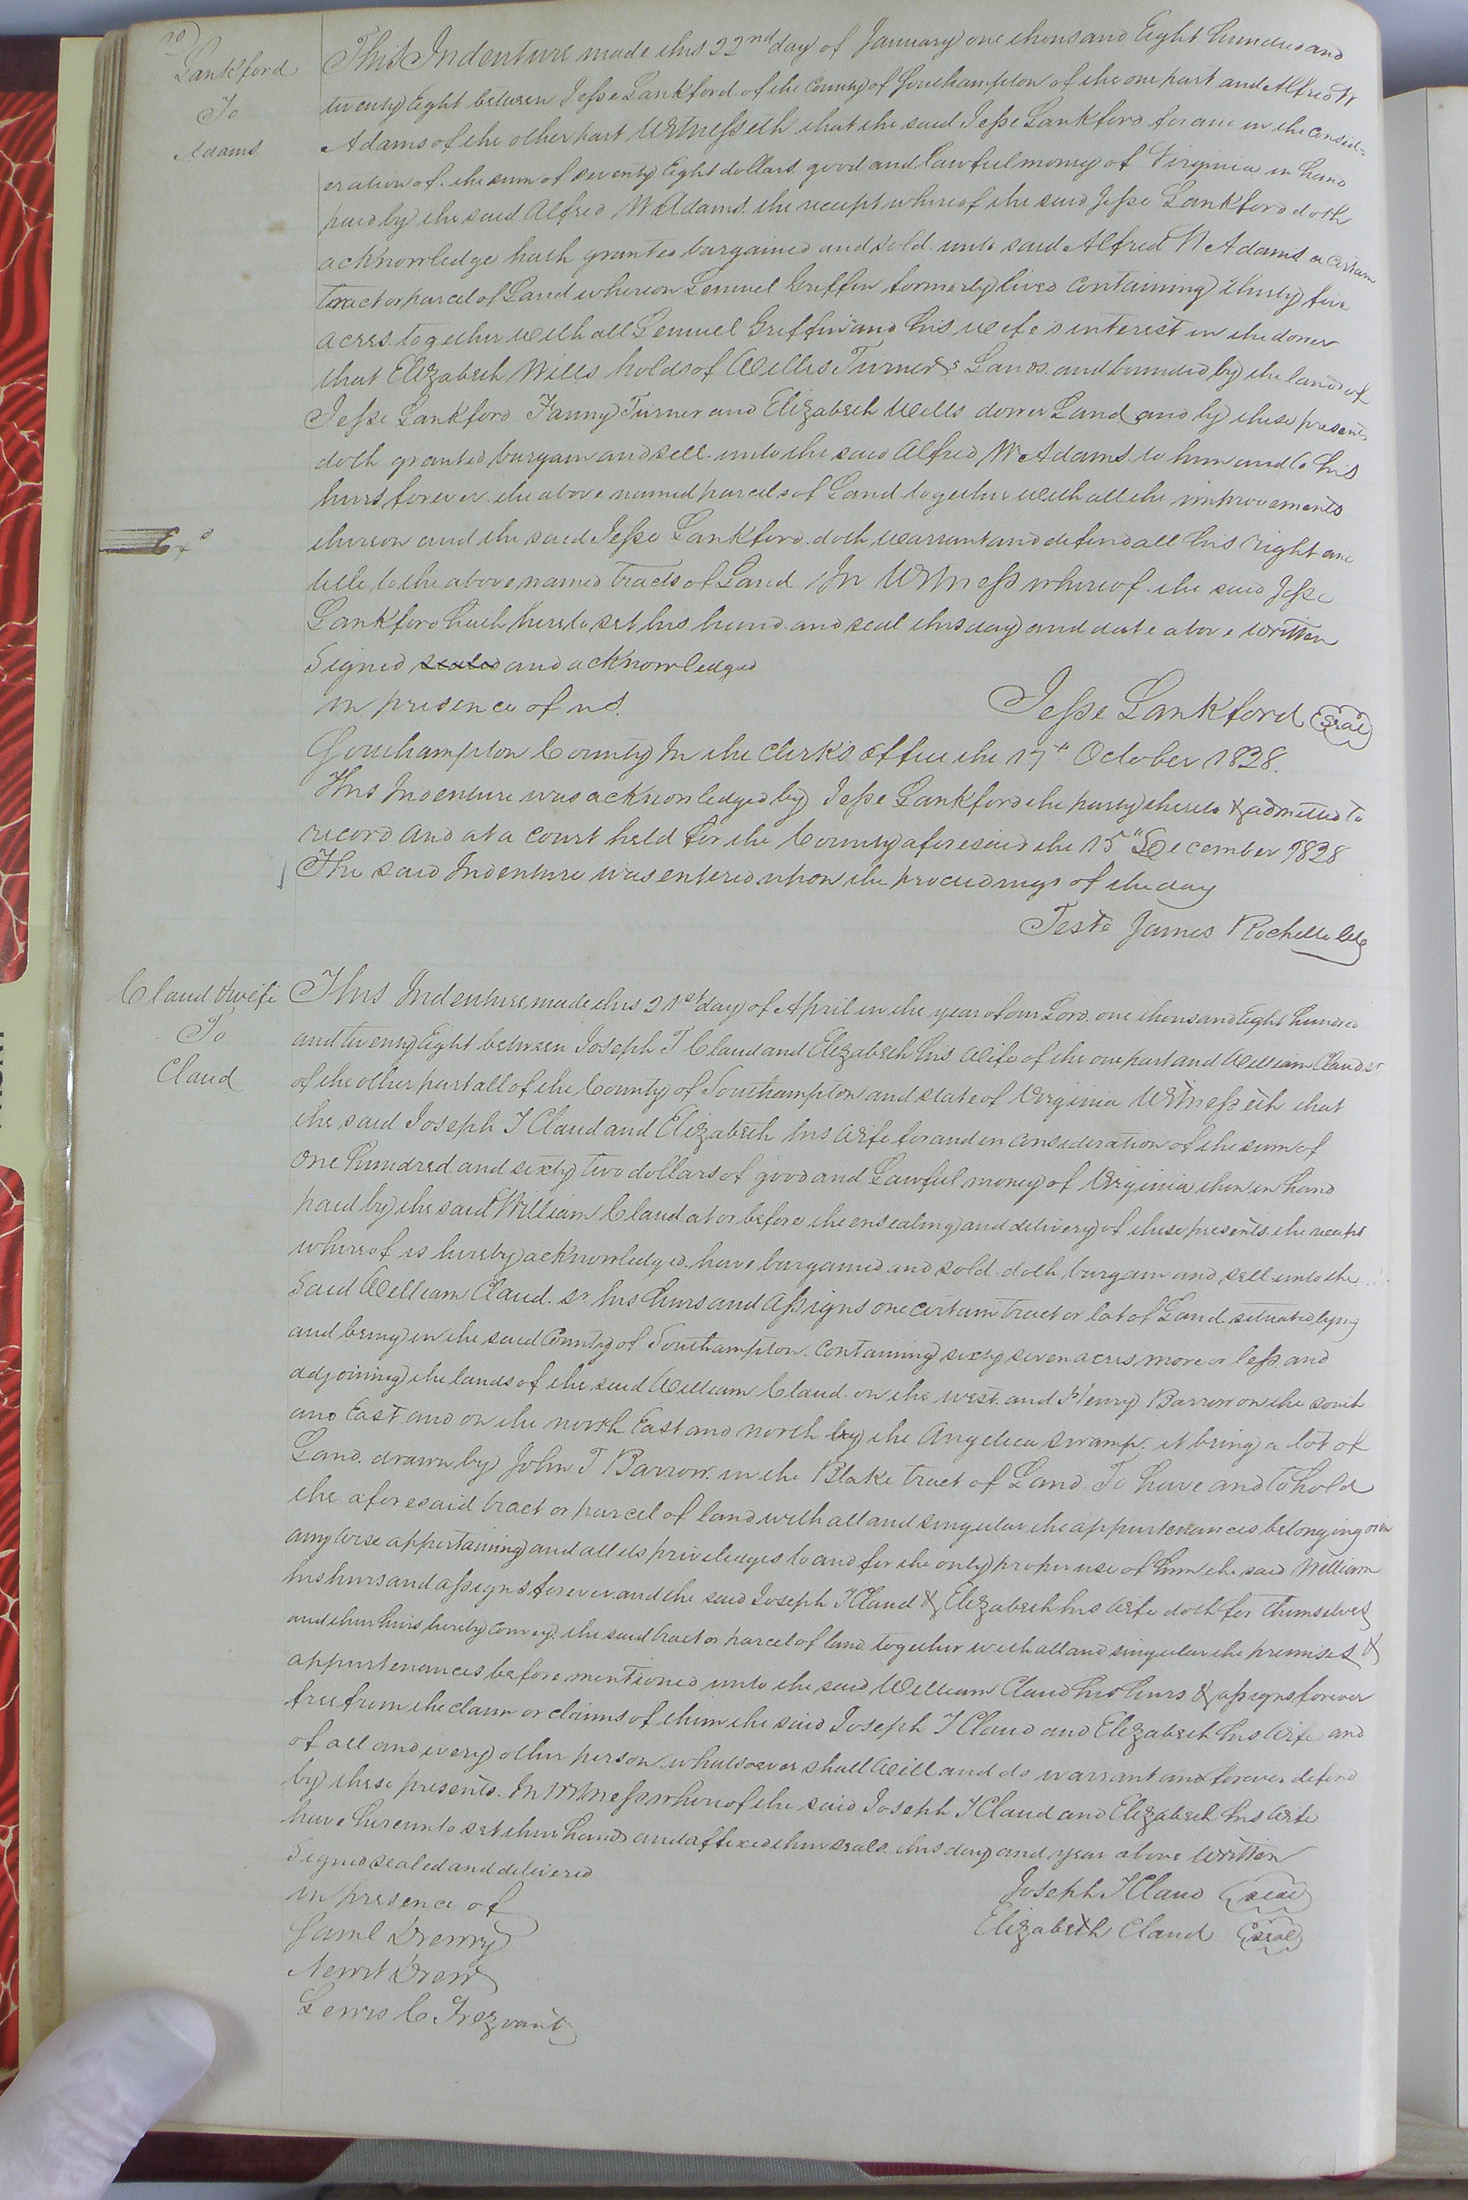 Lankford
To
Adams
This Indenture made this 22nd day of January one thousand Eight hundred and
twenty Eight between Jesse Lankford of the County of Southampton of the one part and Alfred W
Adams of the other part Witnesseth that the said Jesse Lankford for and in the consid-
eration of the sum of seventy Eight dollars good and Lawful money of Virginia in hand
paid by the said Alfred W Adams the receipt whereof the said Jesse Lankford doth
acknowledge hath granted bargained and sold unto said Alfred W Adams a certain
tract or parcel of Land whereon Lemuel Griffin formerly lived containing thirty five
acres together with all Lemuel Griffin and his wife's interest in the dower
that Elizabeth Wills holds of Willis Turner's Lands and bounded by the lands of
Jesse Lankford Fanny Turner and Elizabeth Wells dower Land and by these presents
doth granted bargain and sell unto the said Alfred W Adams to him and to his
heirs forever the above named parcels of Land together with all the improvements
thereon and the said Jesse Lankford doth warrant and defend all his right and
title to the above named tracts of Land In Witness whereof the said Jesse
Lankford hath hereto set his hand and seal this day and date above written
Signed sealed and acknowledged
in presence of us.
Jesse Lankford seal
Southampton County In the Clerk's Office the 17th October 1828.
This Indenture was acknowledged by Jesse Lankford the party thereto & admitted to
record and at a court held for the County aforesaid the 15th December 1828
The said Indenture was entered upon the proceedings of the day
Teste James Rochelle Clk
Claud & wife
To
Claud
This Indenture made this 21st day of April in the year of our Lord one thousand Eight hundred
and twenty Eight between Joseph T Claud and Elizabeth his wife of the one part and William Claud Sr
of the other part all of the County of Southampton and state of Virginia Witnesseth that
the said Joseph T Claud and Elizabeth his wife for and in consideration of the sum of
one hundred and sixty two dollars of good and Lawful money of Virginia them in hand
paid by the said William Claud at or before the ensealing and delivery of these presents the receipt
whereof is hereby acknowledged have bargained and sold doth bargain and sell unto the
said William Claud Sr his heirs and assigns one certain tract or lot of Land situated lying
and being in the said County of Southampton containing sixty seven acres more or less and
adjoining the lands of the said William Claud on the west and Henry Barrow on the south
and East and on the north East and north by the Angelica swamp it being a lot of
Land drawn by John T Barrow in the Blake tract of Land To have and to hold
the aforesaid tract or parcel of land with all and singular the appurtenances belonging or in
any wise appertaining and all its priviledges to and for the only proper use of him the said William
his heirs and assigns forever and the said Joseph T Claud & Elizabeth his wife doth for themselves
and their heirs hereby convey the said tract or parcel of land together with all and singular the premises &
appurtenances before mentioned unto the said William Claud his heirs & assigns forever
free from the claim or claims of them the said Joseph T Claud and Elizabeth his wife and
of all and every other person whatsoever shall will and do warrant and forever defend
by these presents. In Witness whereof the said Joseph T Claud and Elizabeth his wife
have hereunto set their hands and affixed their seals this day and year above written
Signed sealed and delivered
in presence of
Joseph T Claud seal
Elizabeth Claud seal
Saml Drewry
Newit Drew
Lewis C Trezvant